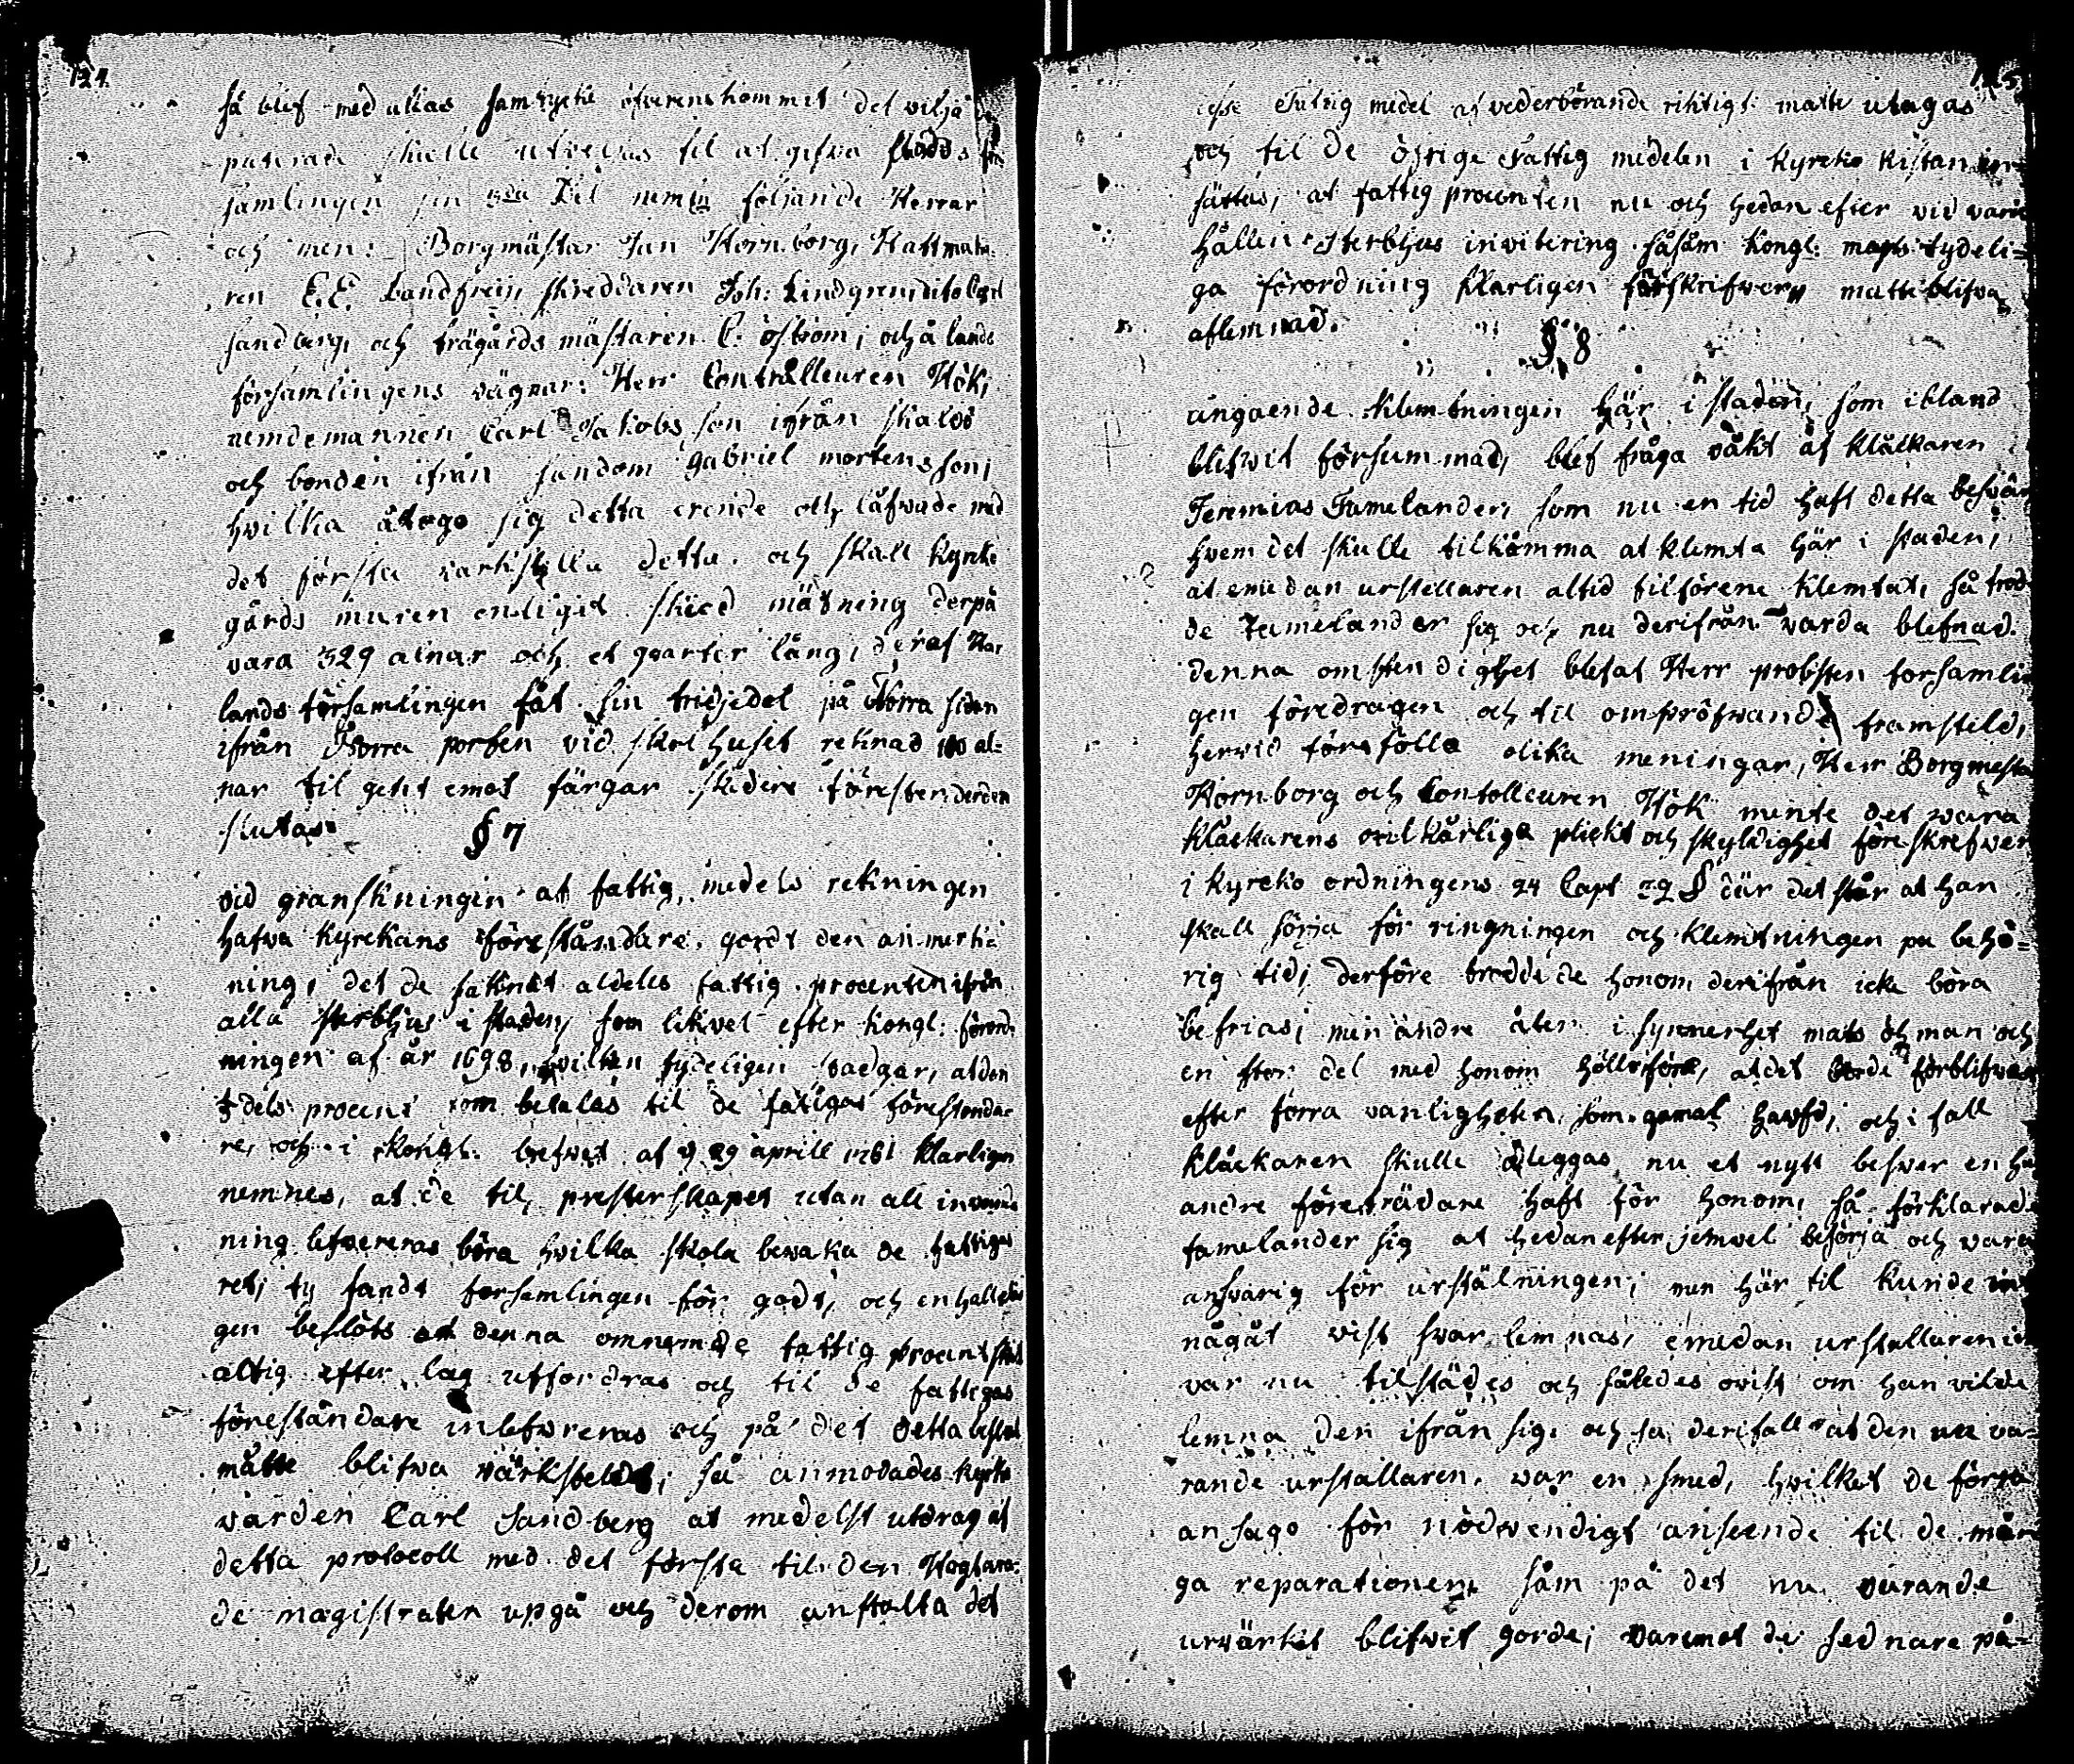 124.
så blef med allas samtycke öfverenskommit det vilja
puterade skulle utvelias til at gifva stads för
samlingen sin 3die Del nemln följande Herrar
och men: Borgmästar Jan Kornborg, Hattmaka:
ren C. E. Landgrein, skreddaren Joh: Lindgren dito Carl
sandberg, och trägårds mästaren C: öström; och å lands
församlingens vägnar: Herr Contrålleuren Hök,
nemdemannen Carl Jakobs son ifrån skaldö
och bonden ifrån sandöm gabriel mortensson;
hvilka åtogo sig detta erende och låfwade med
det första varkställa detta. och skall kyrko
gårds muren enligit skied mätning derpå
vara 329 alnar och et quarter lång; deraf Kar
lands församlingen fåt sin tridjedel på Norra sidan
ifrån Norra porten vid skolhuset reknad 110 al=
nar til gent emot färgar skiders
slutas.
§ 7
vid granskningen af fattig medels rekningen
hafva kyrckans föreståndare. gordt den anmerk
ning, det de saknat aldeles fattig procenten ifrån
alla sterbhus i staden, som likvel efter kongl: förord
ningen af år 1698, hvilken tydeligen stadgar, at den
dels procent som betalas til de fatigas förestonda=
re, och i kongl. brefvet af d 29 aprill 1761 klarligen
nemnes, at de til presterskapet utan all invend
ning lefvereras böra hvilka skola bevaka de fattigas
ret; ty fandt forsamlingen för godt, och enhallel
gen beslöts at denna omnemde fattig procent skal
altig efter lag utfordras och til de fattigas
föreståndare inlefvreras och på det detta beslut
måtte blifwa värkstelt; så anmodades kyrko
värden Carl Sandberg at medelst utdrag af
detta protocoll med det första til den Hogtära=
de magistraten upgå och derom anstalta det
fattig medel af vederbörande riktigt matte utagas
och til de öfrige fattig medelen i kyrcko kistan in
sättas, at fattig procenten nu och hedan efter vid varie
hållen sterbhus invitering såsom Kongl. majts tydeli=
ga förordning klarligen förskrifwer matte blifva
aflemnad.
§ 8
angaende klemtningen här i staden, som ibland
blifwit försummad, blef fråga väkt af klåckaren
Jeremias Tamelander, som nu en tid haft detta besvär
hvem det skulle tilkomma at klemta här i staden,
at emedan urstellaren altid tilförene klemtat, så trod
de Tamelander sig och nu derifrån varda blefnad.
denna omstendighet blefat Herr probsten forsamlin
gen föredragen och til ompröfwande framstild,
herwid föreföllo olika meningar, Herr Borgmesta
Kornborg och Contolleuren Hök mente det wara
klåckarens ovilkårliga plickt och skyldighet föreskrefwen
i kyrcko ordningens 24 Capt 29 § där det står at han
skall sörja för ringningen och klemtningen pa behö=
rig tid, derföre trodde de honom derifrån icke böra
befrias; men andre åter i synnerhet mats öhman och
en stor del med honom höllo före, at det borde förblifwa
efter forra vanligheten, som gamal hawfd; och i fall
klåckaren skulle åleggas nu et nytt besver en ha
andre företrädare haft för honom, så förklarade
tamelander sig at hedanefter jemwel besörja och vara
answarig för urstälningen; men här til kunde in
någåt vist swar lemnas, emedan urstallaren i
var nu tilstädes och således ovist om han vilde
lemna den ifrån sig. och sa derifall at den nu va=
rande urstallaren. war en smed, hvilket de förra
ansago för nödvendigt anseende til de mån
ga reparationer, såm på det nu varande
urvärket blifwit gorde; varemot de sednare på=